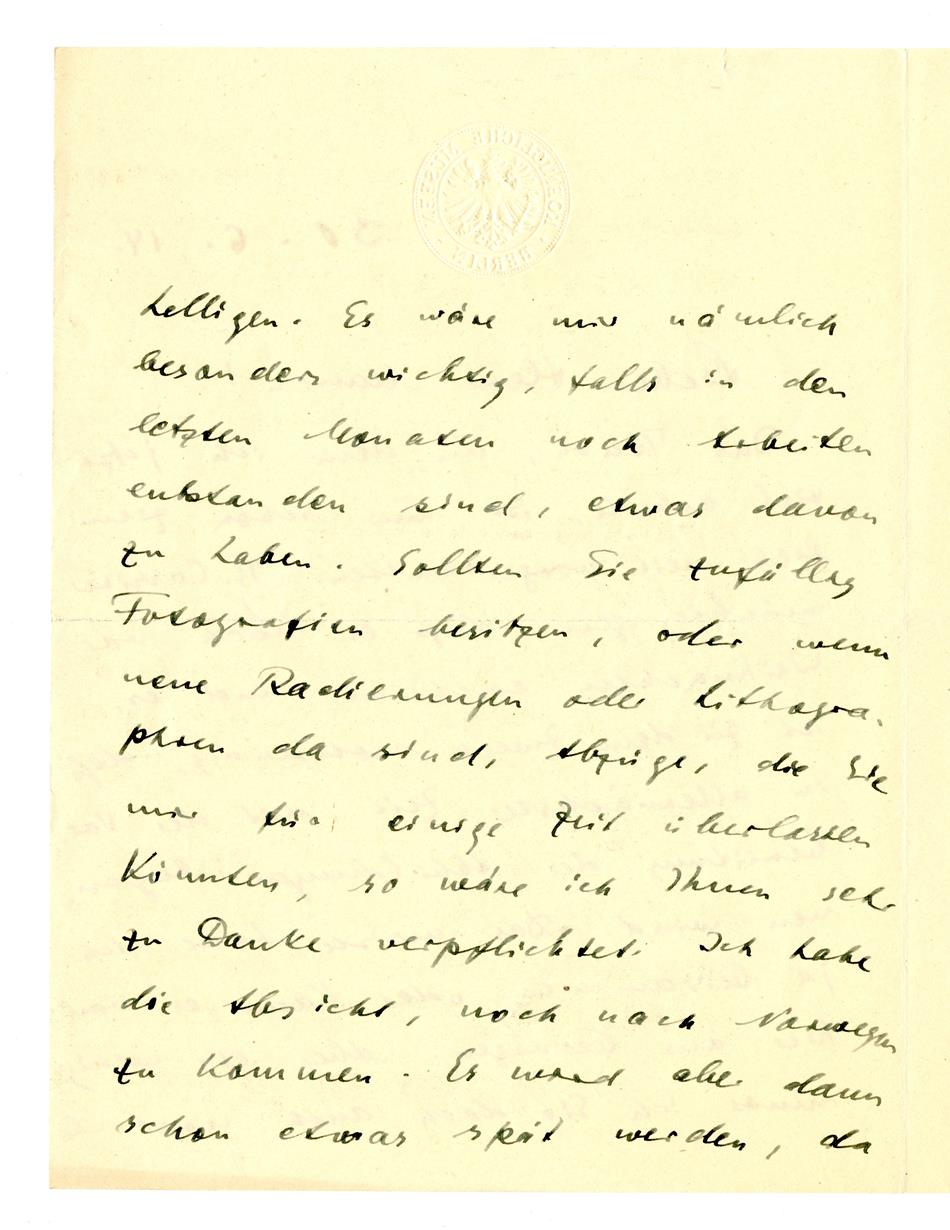 KOENIGLICHE MUSEEN · BERLIN ·
30. 6. 14.
helligen. Es wäre mir nämlich
besonders wichtig, falls in den
letzten Monaten noch Arbeiten
entstanden sind, etwas davon
zu haben. Sollten Sie zufällig
Fotografien besitzen, oder wenn
neue Radierungen oder Lithogra-
phien da sind, Abzüge, die Sie
mir für einige Zeit überlassen
könnten, so wäre ich Ihnen sehr
zu Danke verpflichtet. Ich habe
die Absicht, noch nach Norwegen
zu kommen. Es wird aber dann
schon etwas spät werden, da